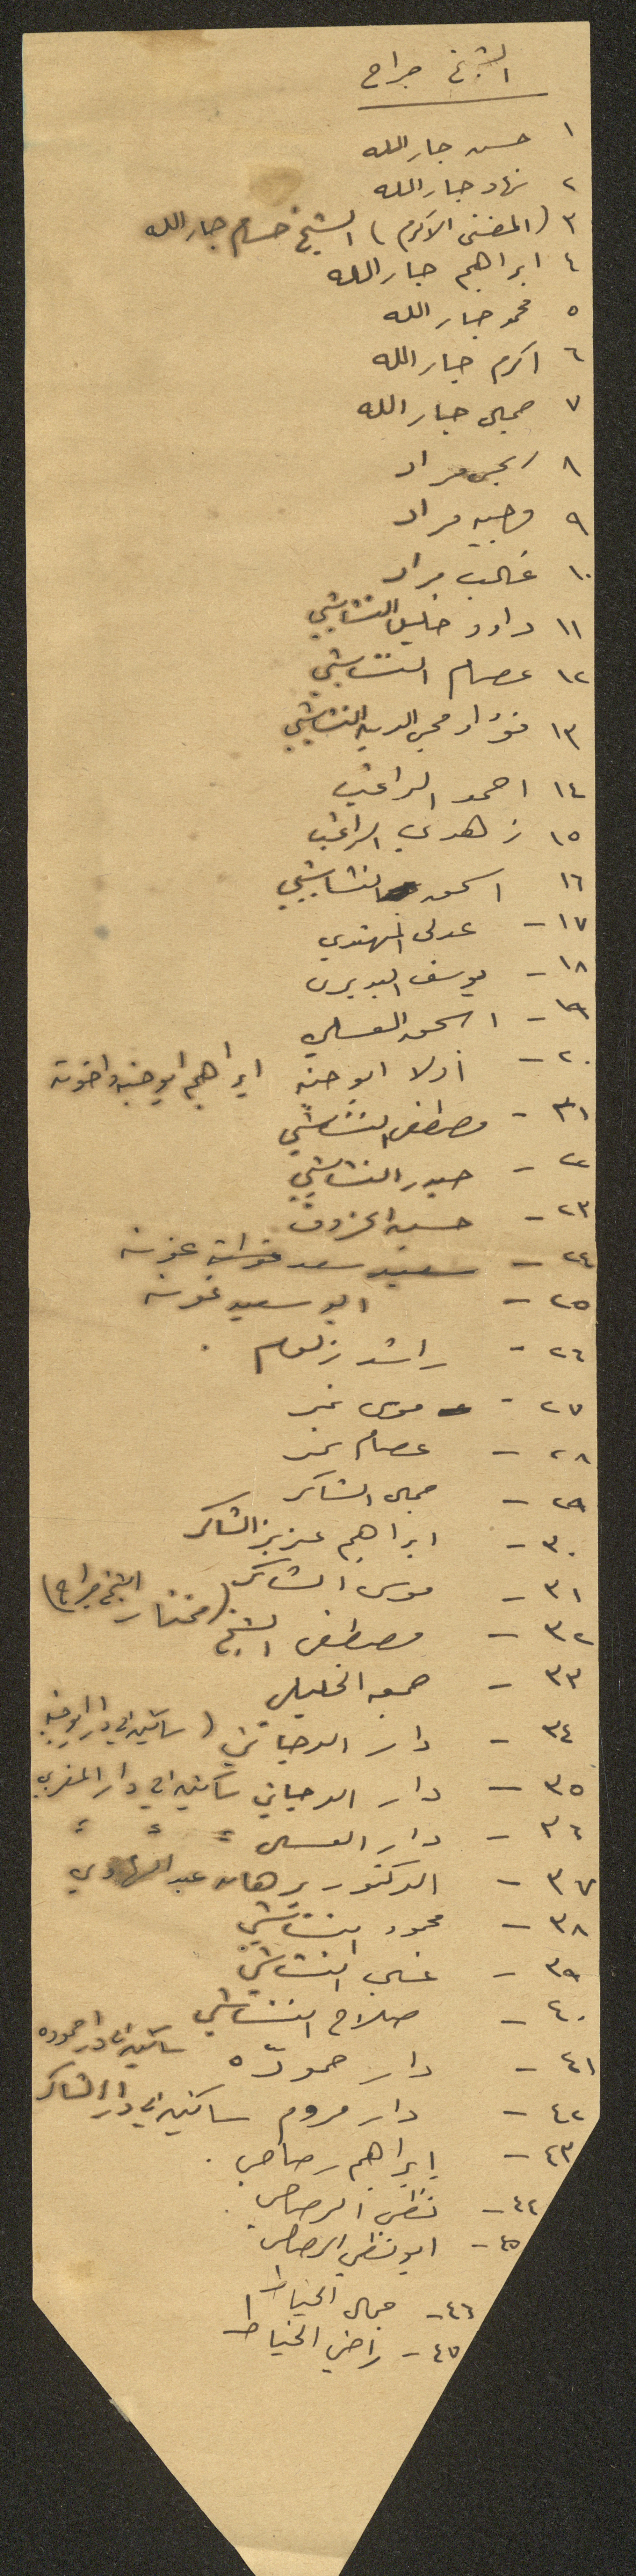 الشيخ جراح
١ حسن جار الله
٢ نهاد جار الله
٣ (المفتي الاكرم) الشيخ حسام جار الله
٤ ابراهيم جار الله
٥ محمد جار الله
٦ اكرم جار الله
٧ جمال جار الله
٨ مراد
٩ وجيه مراد
١٠ غالب مراد
١١ داود خليل النشاشيبي
١٢ عصام النشاشيبي
١٣ فؤاد محي الدين النشاشيبي
١٤ احمد الراغب
١٥ زهدي الراغب
١٦ اسحق النشاشيبي
١٧ – عدلي المهتدي
١٨ – يوسف البديري
١٩ – اسحق العسلي
٢٠ – اولاد ابو جبنه ابراهيم ابو جبنه واخوته
٢١ – مصطفى النشاشيبي
٢٢ – حيدر النشاشيبي
٢٣ – حسين الخروف
٢٤ – سعيد سعد غوشة
٢٥ – ابو سعيد غوشة
٢٦ – راشد زلوم
٢٧ – موسى نمر
٢٨ – عصام نمر
٢٩ – جمال الشاكر
٣٠ – ابراهيم عزيز الشاكر
٣١ – موسى الشاكر
٣٢ – مصطفى الشيخ (مختار الشيخ جراح)
٣٣ – جمعه الخليلي
٣٤ – دار الدجاني (ساكنين في دار ابو جبنه
٣٥ – دار الدجاني ساكنين في دار المغربي
٣٦ – دار العسلي = = =
٣٧ – الدكتور برهان عبد الهادي
٣٨ – محمود النشاشيبي
٣٩ – علي النشاشيبي
٤٠ – صلاح النشاشيبي
٤١ – دار حمودّه ساكنين في دار حموده
٤٢ – دار مروم ساكنين في دار الشاكر
٤٣ – إبراهيم رصاص
٤٤ – نظمي الرصاص
٤٥ – ابو نظمي الرصاص
٤٦ – جمال الخياط
٤٧ – راضي الخياط